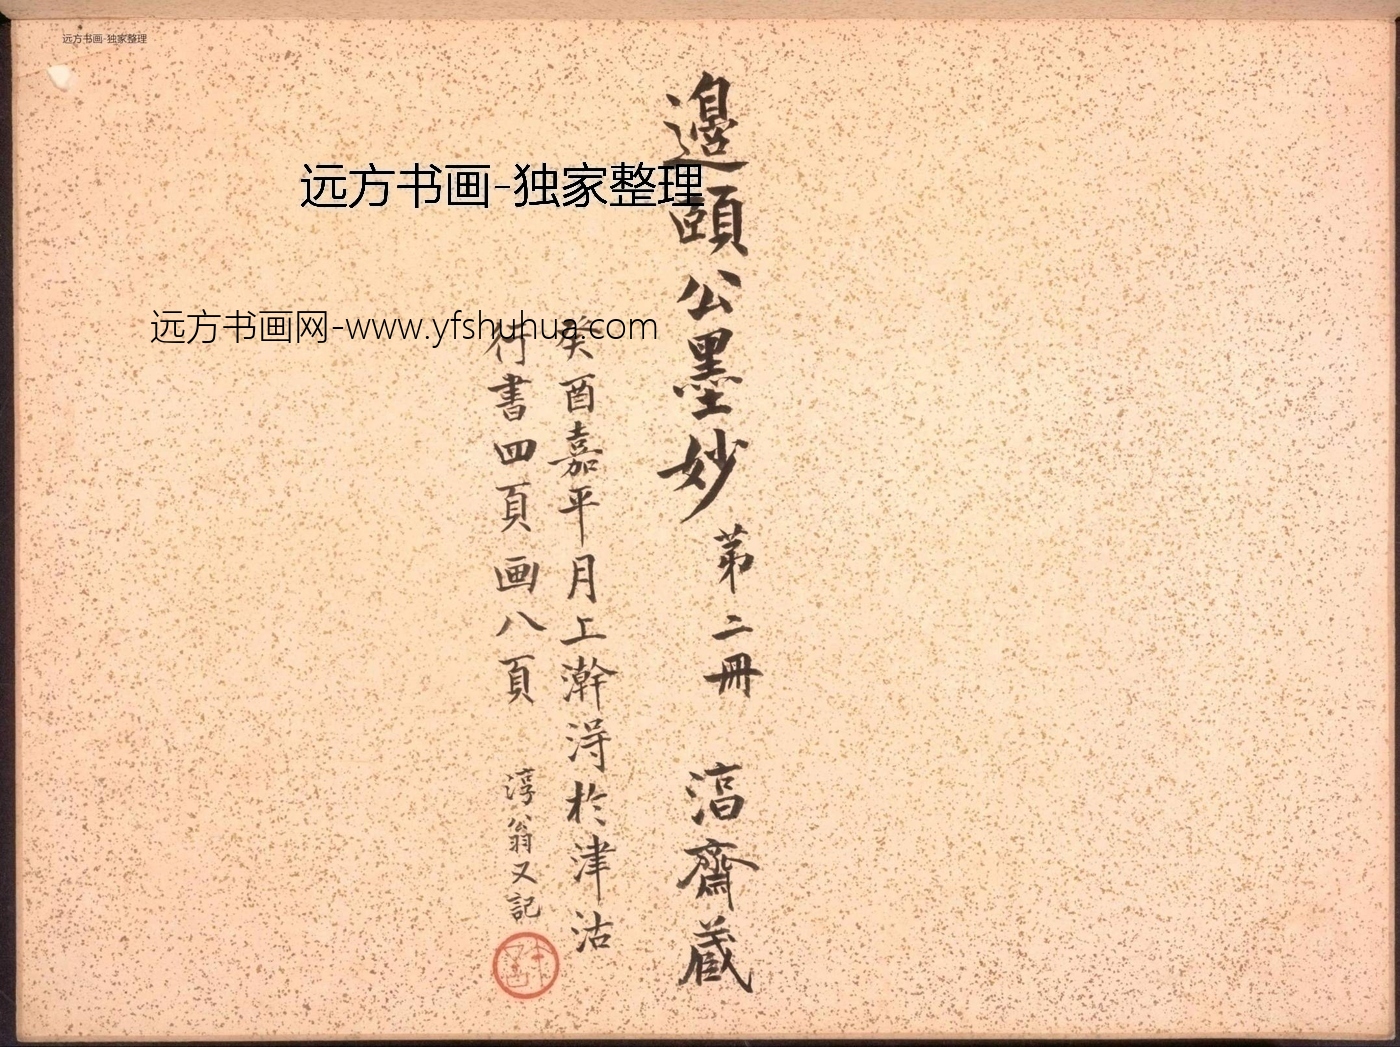 远方书画-独家整理
远方书画-独家整理
远方书画网-www.yfshuhua.com
邉頤公墨妙 苐二冊 㴓齋蔵
癸酉嘉平月上澣淂於津沽
行書四頁画八頁 淳翁又記